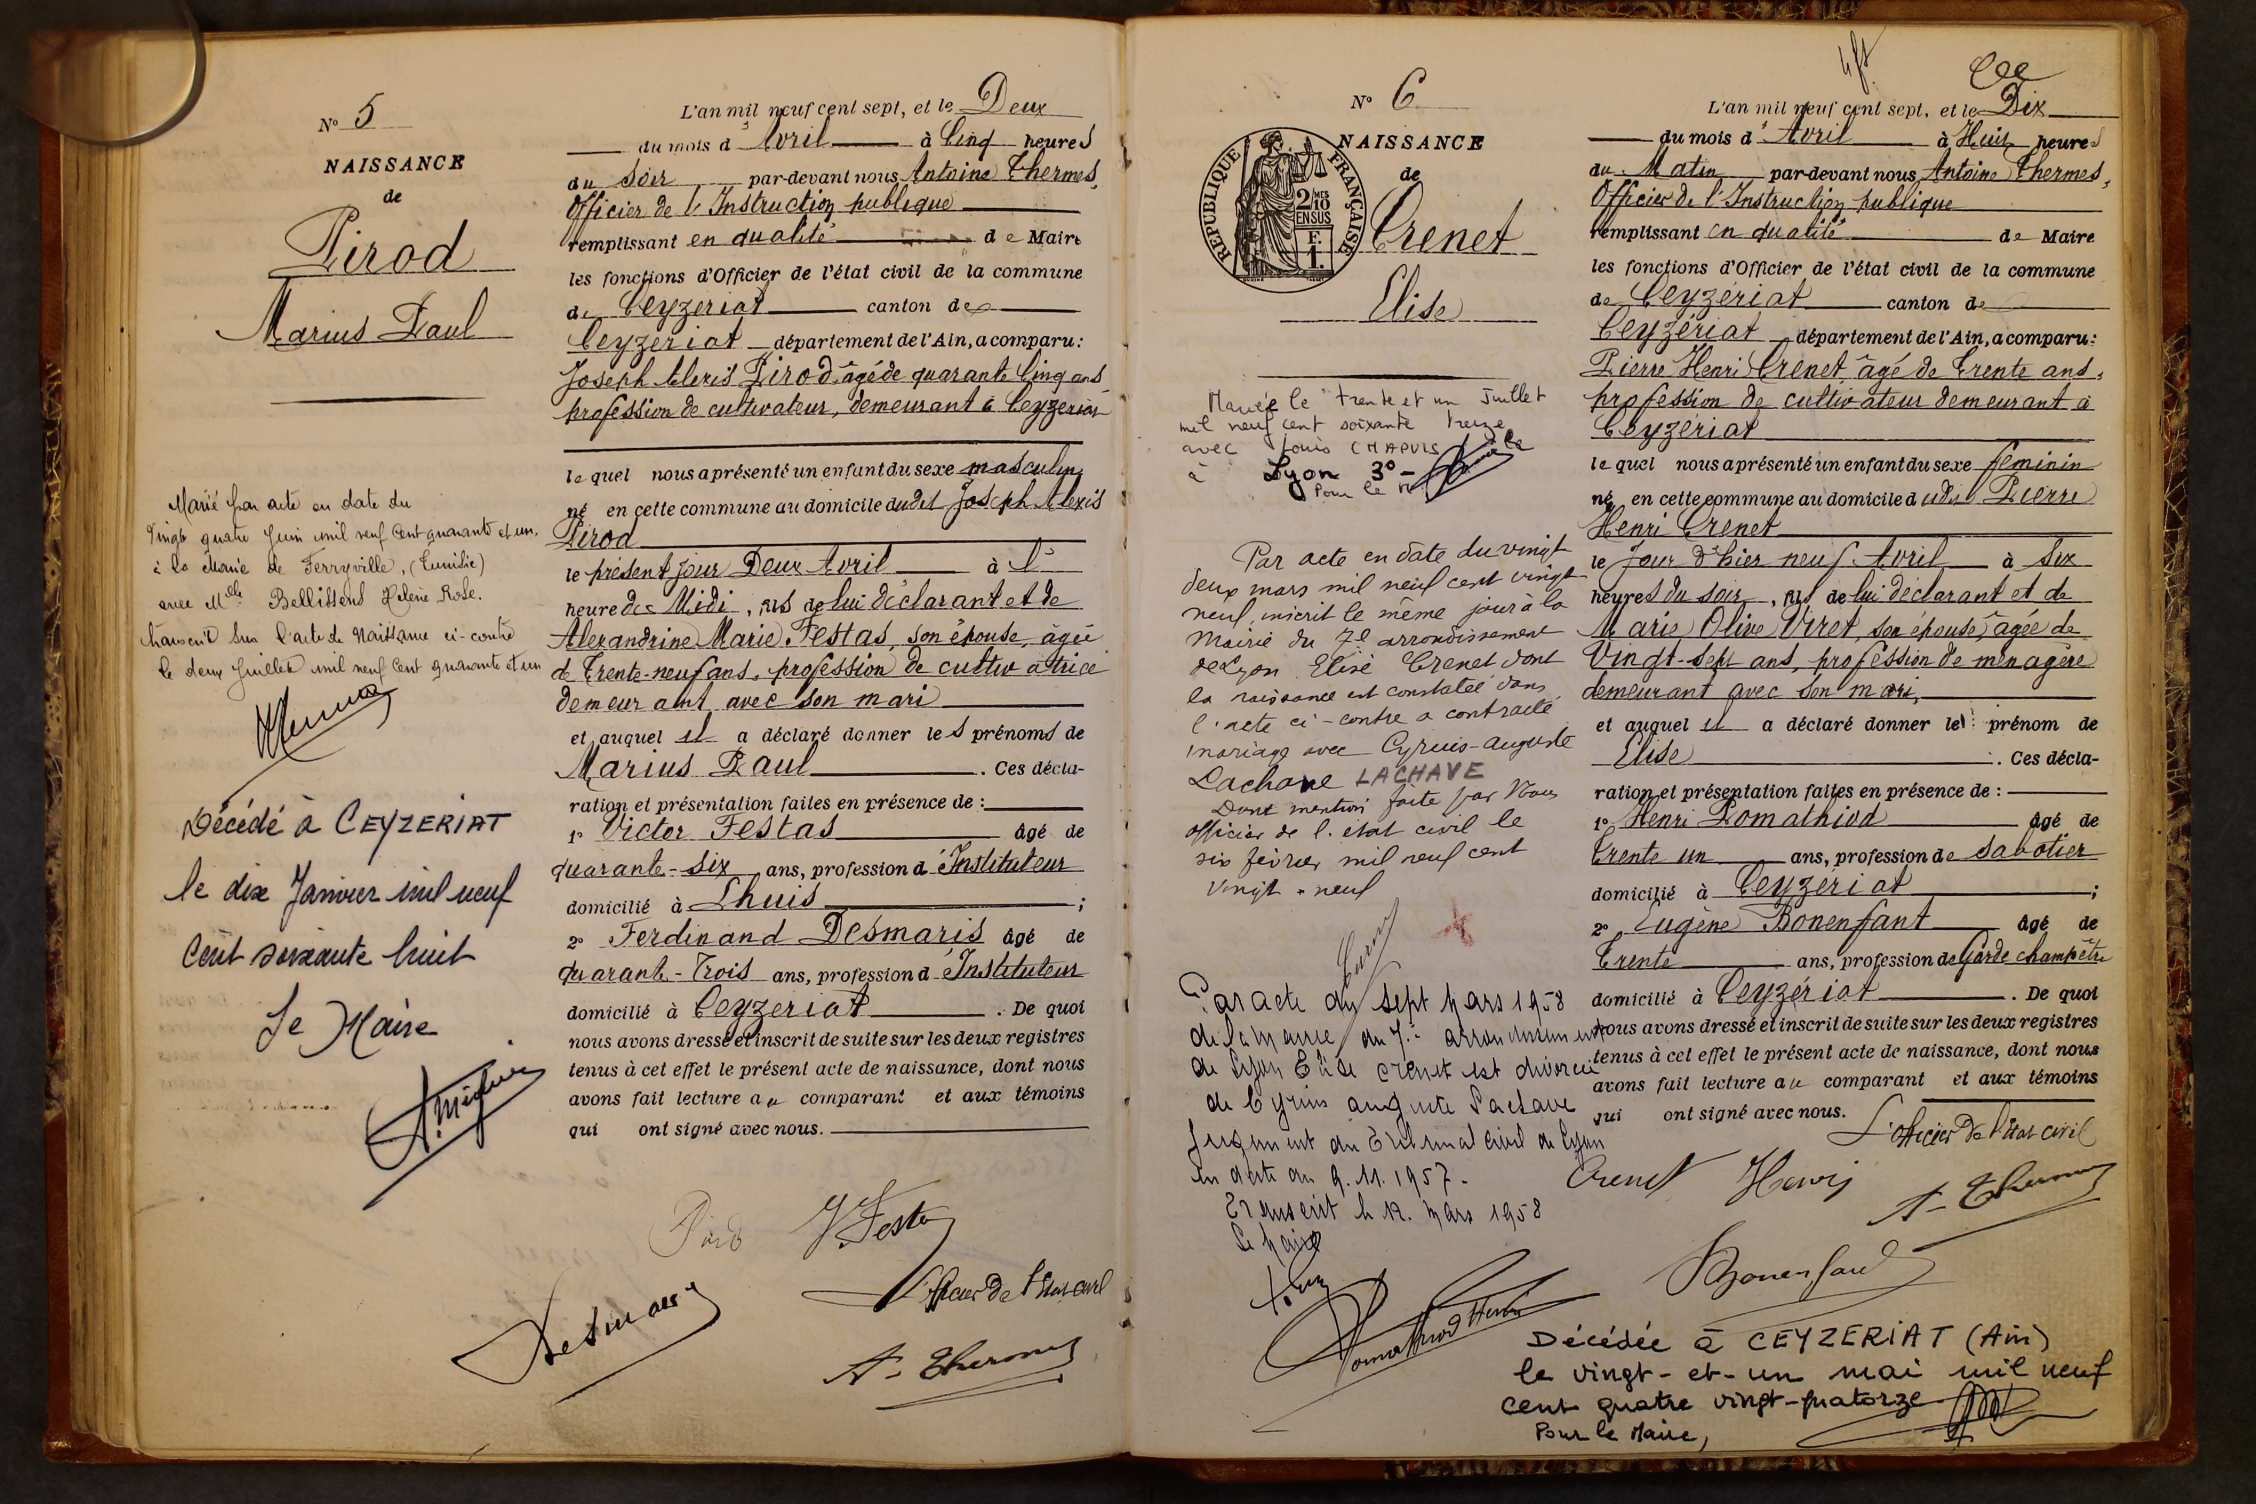 N° 5
NAISSANCE
de
Pirod
Marius Paul
Marié par acte en date du
vingt quatre Juin mil neuf cent quarante et un,
à la Mairie de Ferryville, (Tunisie)
avec Mlle Bellissens Helene Rose.
transcrit sur l'acte de Naissance ci-contre
le deux Juillet mil neuf cent quarante et un
Décédé à CEYZERIAT
le dix Janvier mil neuf
cent soixante huit
Le Maire
L'an mil neuf cent sept, et le Deux
du mois d'Avril à Cinq heures
du Soir par-devant nous Antoine Thermes,
Officier de l'Instruction publique
remplissant en qualité de Maire
les fonctions d'Officier de l'état civil de la commune
de Ceyzeriat canton de
Ceyzeriat département de l'Ain, a comparu :
Joseph Alexis Pirod, âgé de quarante Cinq ans
profession de cultivateur, demeurant à Ceyzeriat
le quel nous a présenté un enfant du sexe masculin
né en cette commune au domicile dudit Joseph Alexis
Pirod
le présent jour Deux Avril à l'
heure de Midi, fils de lui déclarant et de
Alexandrine Marie Festas, son épouse, âgée
de Trente-neuf ans, profession de cultivatrice
demeurant avec son mari
et auquel il a déclaré donner les prénoms de
Marius Paul . Ces décla-
ration et présentation faites en présence de :
1° Victor Festas âgé de
quarante-six ans, profession d'Instituteur
domicilié à Lhuis ;
2° Ferdinand Desmaris âgé de
quarante-Trois ans, profession d'Instituteur
domicilié à Ceyzeriat . De quoi
nous avons dressé et inscrit de suite sur les deux registres
tenus à cet effet le présent acte de naissance, dont nous
avons fait lecture au comparant et aux témoins
qui ont signé avec nous.
Pirod V. Festas
L'officier de l'Etat civil
Desmaris
A. Thermes
N° 6
NAISSANCE
de
RÉPUBLIQUE FRANÇAISE
2/10 MES
EN SUS
F.
1.
Crenet
Elise
Mariée le trente et un Juillet
mil neuf cent soixante treize
avec Louis CHAPUIS
à Lyon 3° -
Pour le M
Par acte en date du vingt
deux mars mil neuf cent vingt
neuf, inscrit le même jour à la
Mairie du 7e arrondissement
de Lyon Elise Crenet dont
la naissance est constatée dans
l'acte ci-contre a contracté
mariage avec Cyrus-Auguste
Lachave LACHAVE
Dont mention faite par Nous
officier de l'état civil le
six février mil neuf cent
vingt-neuf
Par acte du sept Mars 1958
de la mairie du 7e arrondissement
de Lyon Elise Crenet est divorcée
de Cyrius auguste Lachave
Jugement du Tribunal Civil de Lyon
en date du 9.11.1957.
Transcrit le 12. Mars 1958
Le Maire
L'an mil neuf cent sept, et le Dix
du mois d'Avril à Huit heures
du Matin par-devant nous Antoine Thermes,
Officier de l'Instruction publique
remplissant en qualité de Maire
les fonctions d'Officier de l'état civil de la commune
de Ceyzériat canton de
Ceyzériat département de l'Ain, a comparu :
Pierre Henri Crenet, âgé de Trente ans,
profession de cultivateur demeurant à
Ceyzériat
le quel nous a présenté un enfant du sexe féminin
né en cette commune au domicile dudit Pierre
Henri Crenet
le Jour d'hier neuf Avril à Six
heures du soir, fils de lui déclarant et de
Marie Oline Viret, son épouse, âgée de
Vingt-sept ans, profession de ménagère
demeurant avec son mari,
et auquel il a déclaré donner le prénom de
Elise . Ces décla-
ration et présentation faites en présence de :
1° Henri Pomathiod âgé de
Trente un ans, profession de sabotier
domicilié à Ceyzériat ;
2° Eugène Bonenfant âgé de
Trente ans, profession de Garde champêtre
domicilié à Ceyzériat . De quoi
nous avons dressé et inscrit de suite sur les deux registres
tenus à cet effet le présent acte de naissance, dont nous
avons fait lecture au comparant et aux témoins
qui ont signé avec nous.
L'officier de l'Etat civil
Crenet Henri
A. Thermes
Bonenfant
Pomathiod Henri
Décédée à CEYZERIAT (Ain)
le vingt-et-un mai mil neuf
cent quatre vingt-quatorze
Pour le Maire,